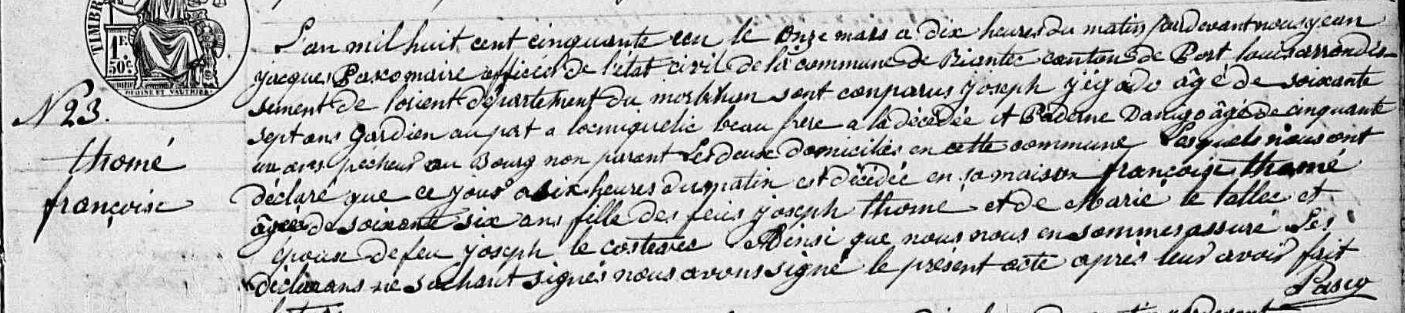 TIMBRE
1F.
50c.
N 23.
thomé
françoise
L'an mil huit cent cinquante un le onze mars a dix heures du matin pardevant nous jean
jacques Pasco maire officier de l'état civil de la commune de Riantec canton de Port louis arrondis-
sement de lorient département du morbihan sont comparus joseph jégado âgé de soixante
sept ans gardien au port a locmiquelic beau frère a la décédée et Paderne Danigo âgé de cinquante
un ans pecheur au Bourg non parent Les deux domiciliés en cette commune Lesquels nous ont
déclaré que ce jour a six heures du matin est décédée en sa maison françoise thomé
âgée de soixante six ans fille des feus joseph thomé et de Marie le tallec et
épouse de feu joseph le costevec Ainsi que nous nous en sommes assuré Les
déclarans ne sachant signés nous avons signé le présent acte après leur avoir fait
Pasco